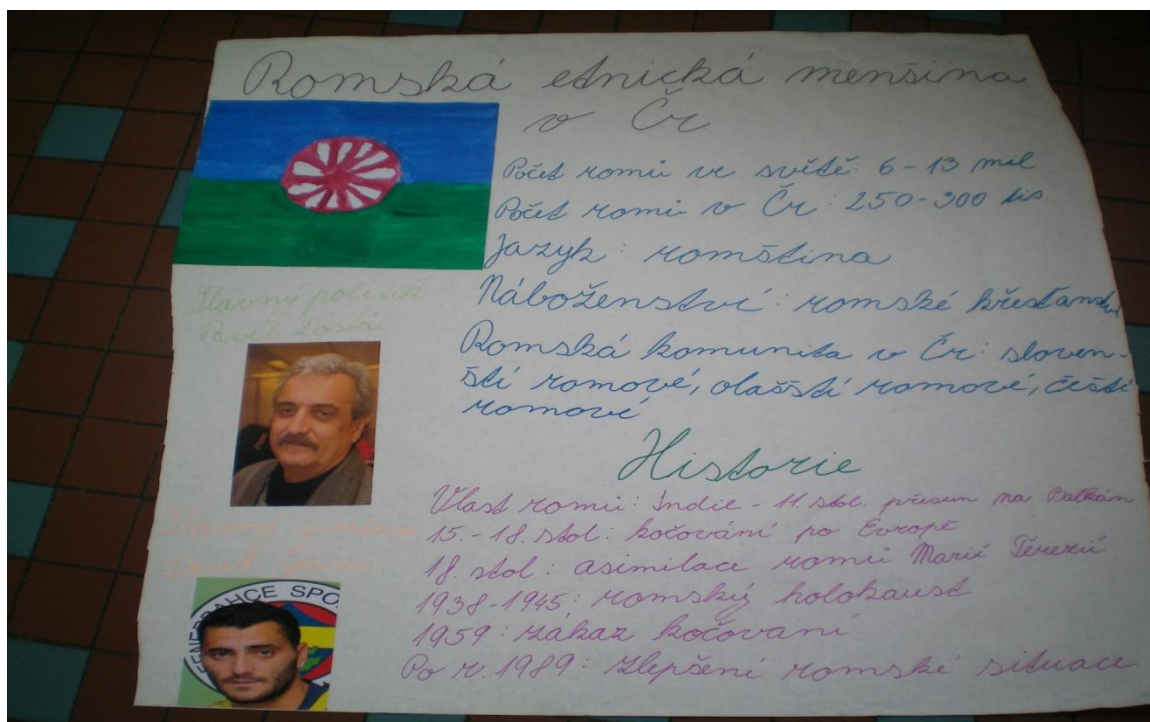 Romská etnická menšina
v Čr
Počet romů ve světě: 6-13 mil
Počet romů v Čr: 250-300 tis.
Jazyk: romština
Náboženství: romské křesťanství
Romská komunita v Čr: sloven-
ští romové, olašští romové, čeští
romové
Slavný politik
Pavel
Historie
Vlast romů: Indie - 11. stol. přesun na Balkán
15.-18. stol: kočování po Evropě
18. stol: asimilace romů Marií Terezií
1938-1945: romský holokaust
1959: zákaz kočovaní
Po r. 1989: zlepšení romské situace
FENERBAHCE SPO